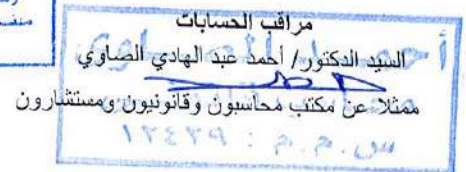 مراقب الحسابات
السيد الدكتور/ أحمد عبد الهادي الصاوي
ممثلا عن مكتب محاسبون وقانونيون ومستشارون
س.م.م : ١٢٤٢٩